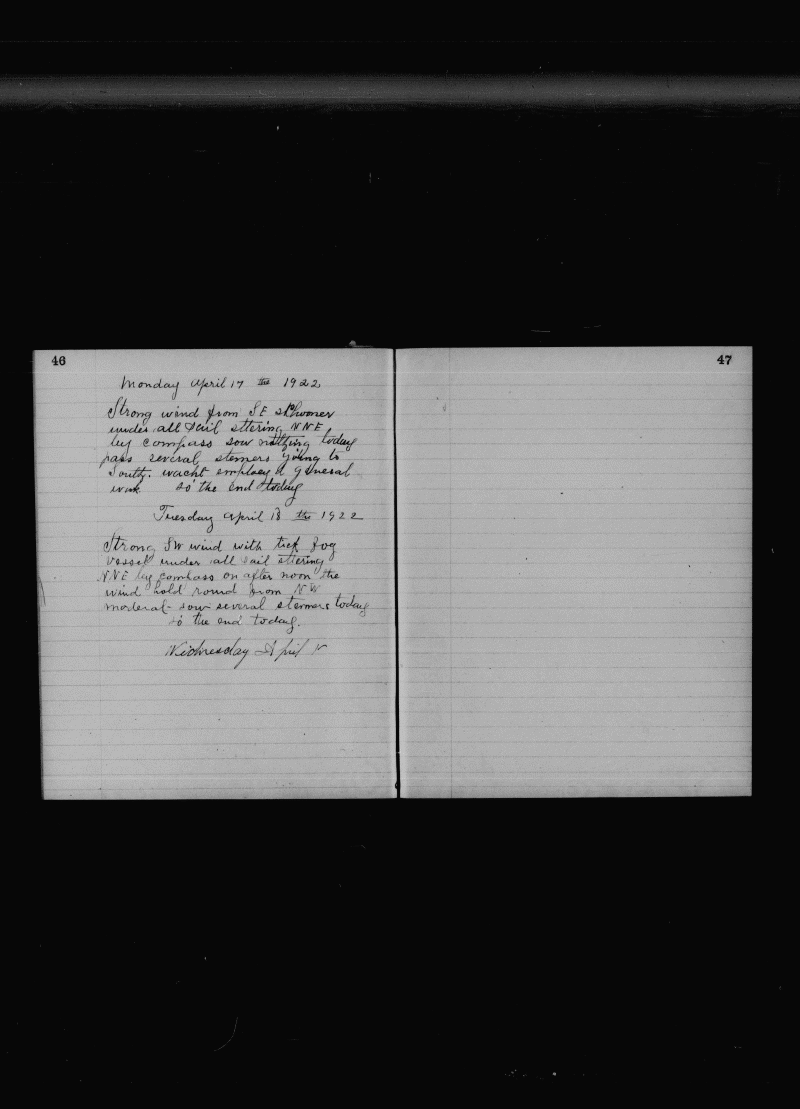 46
Monday April 17 the 1922
Strong wind from SE schooner
under all Sail sttering NNE
by compass sow nothing today
pass several stemers going to
South. wacht employed general
work so the end today
Tuesday April 18 the 1922
Strong SW wind with tick fog
vessel under all sail sttering
NNE by compass on after noon the
wind hold round from NW
morderat sow several stemers today
so the end today.
Wednesday April
47